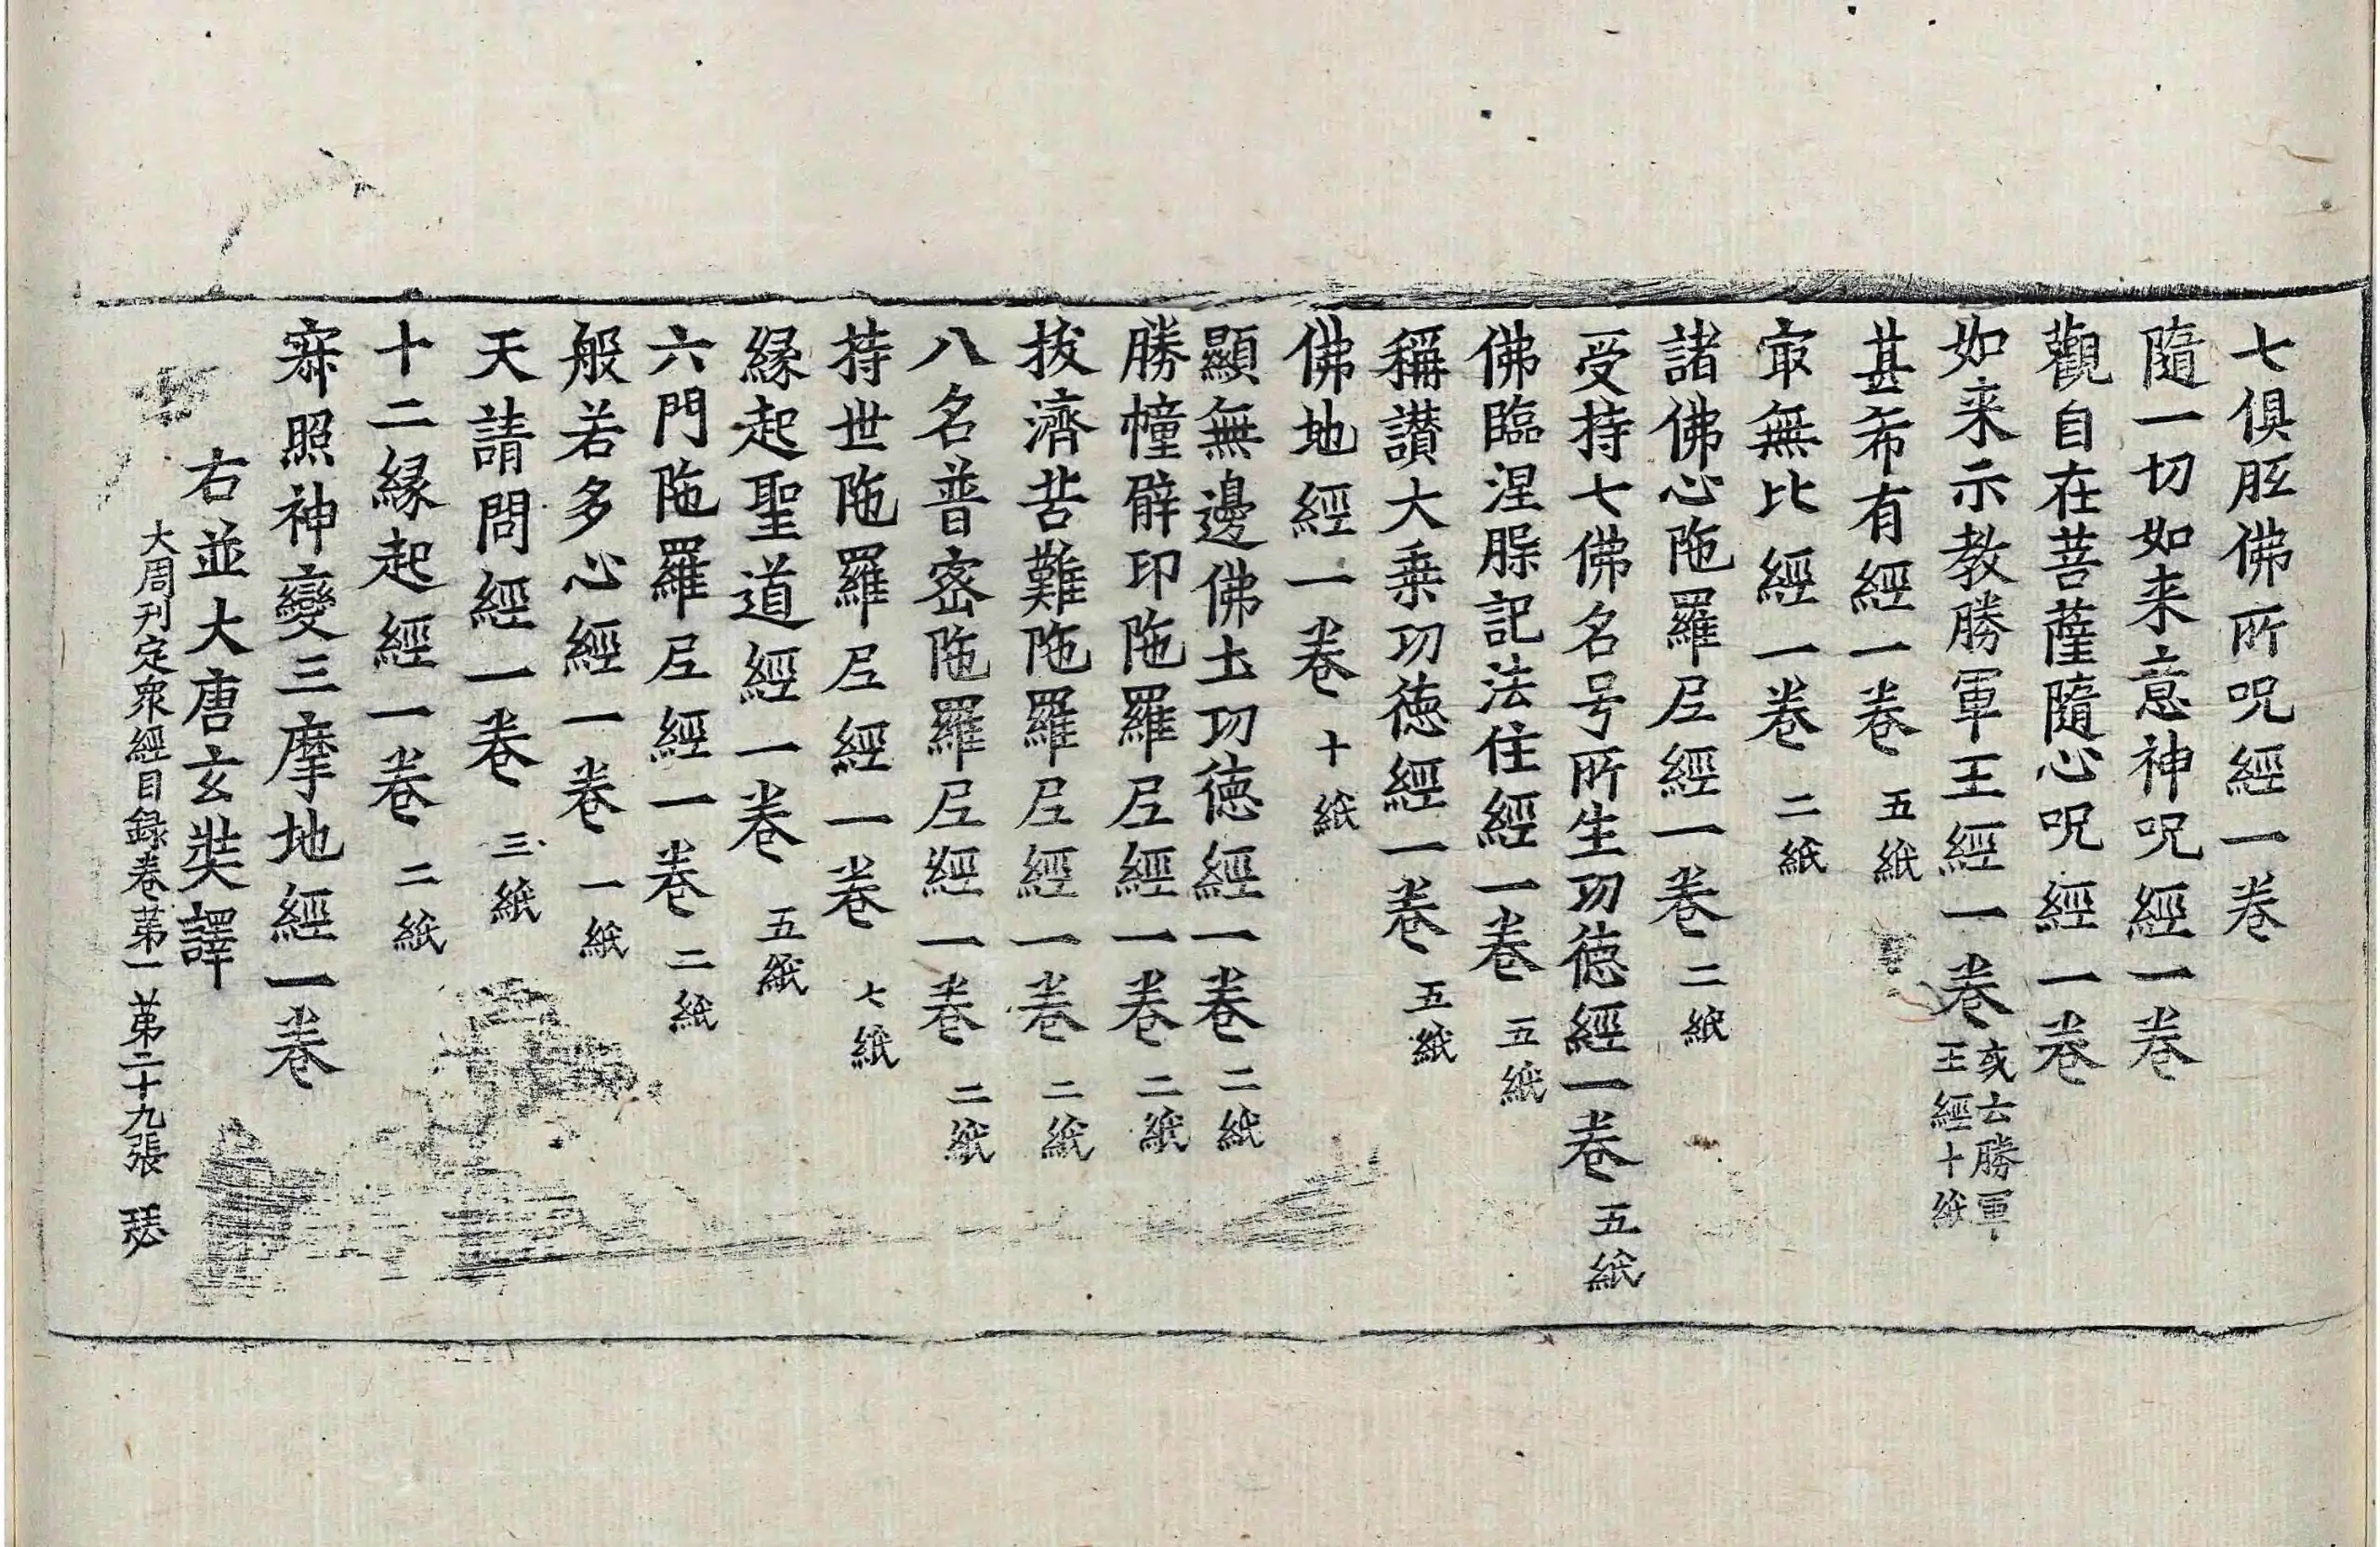 七俱胝佛所呪經一卷
隨一切如来意神呪經一卷
觀自在菩薩隨心呪經一卷
如来示教勝軍王經一卷 亥云勝軍王經十紙
甚希有經一卷 五紙
㝡無比經一卷 二紙
諸佛心陁羅尼經一卷 二紙
受持七佛名号所生功德經一卷 五紙
佛臨涅槃記法住經一卷 五紙
稱讃大乗功徳經一卷 五紙
佛地經一卷 十紙
顯無邊佛土功徳經一卷 二紙
勝幢臂印陁羅尼經一卷 二紙
拔濟苦難陁羅尼經一卷 二紙
八名普密陁羅尼經一卷 二紙
持世陁羅尼經一卷 七紙
縁起聖道經一卷 五紙
六門陁羅尼經一卷 二紙
般若多心經一卷 一紙
天請問經一卷 三紙
十二縁起經一卷 二紙
寂照神變三摩地經一卷
右並大唐玄奘譯
大周刊定衆經目録卷苐一 苐二十九張 瑟